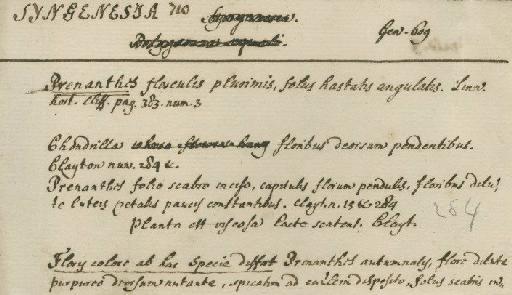 SYNGENESIA 710
Gen. 609
Prenanthes flosculis plurimis, foliis hastatis angulatis. Linn.
hort. cliff. pag. 383. num. 3
Chondrilla floribus deorsum pendentibus.
Clayton num. 284 &.
Prenanthes folio scabro inciso, capitulis florum pendulis, floribus dilu,
te luteis petalis paucis constantibus. Clayt. n. 15 & 284
284
Planta est viscosa lacte scatens. Clayt.
Flos colore ab hac specie differt Prenanthes autumnalis, flore dilute
purpureo deorsum nutante, spicatim ad caulem disposito, foliis scabris in,